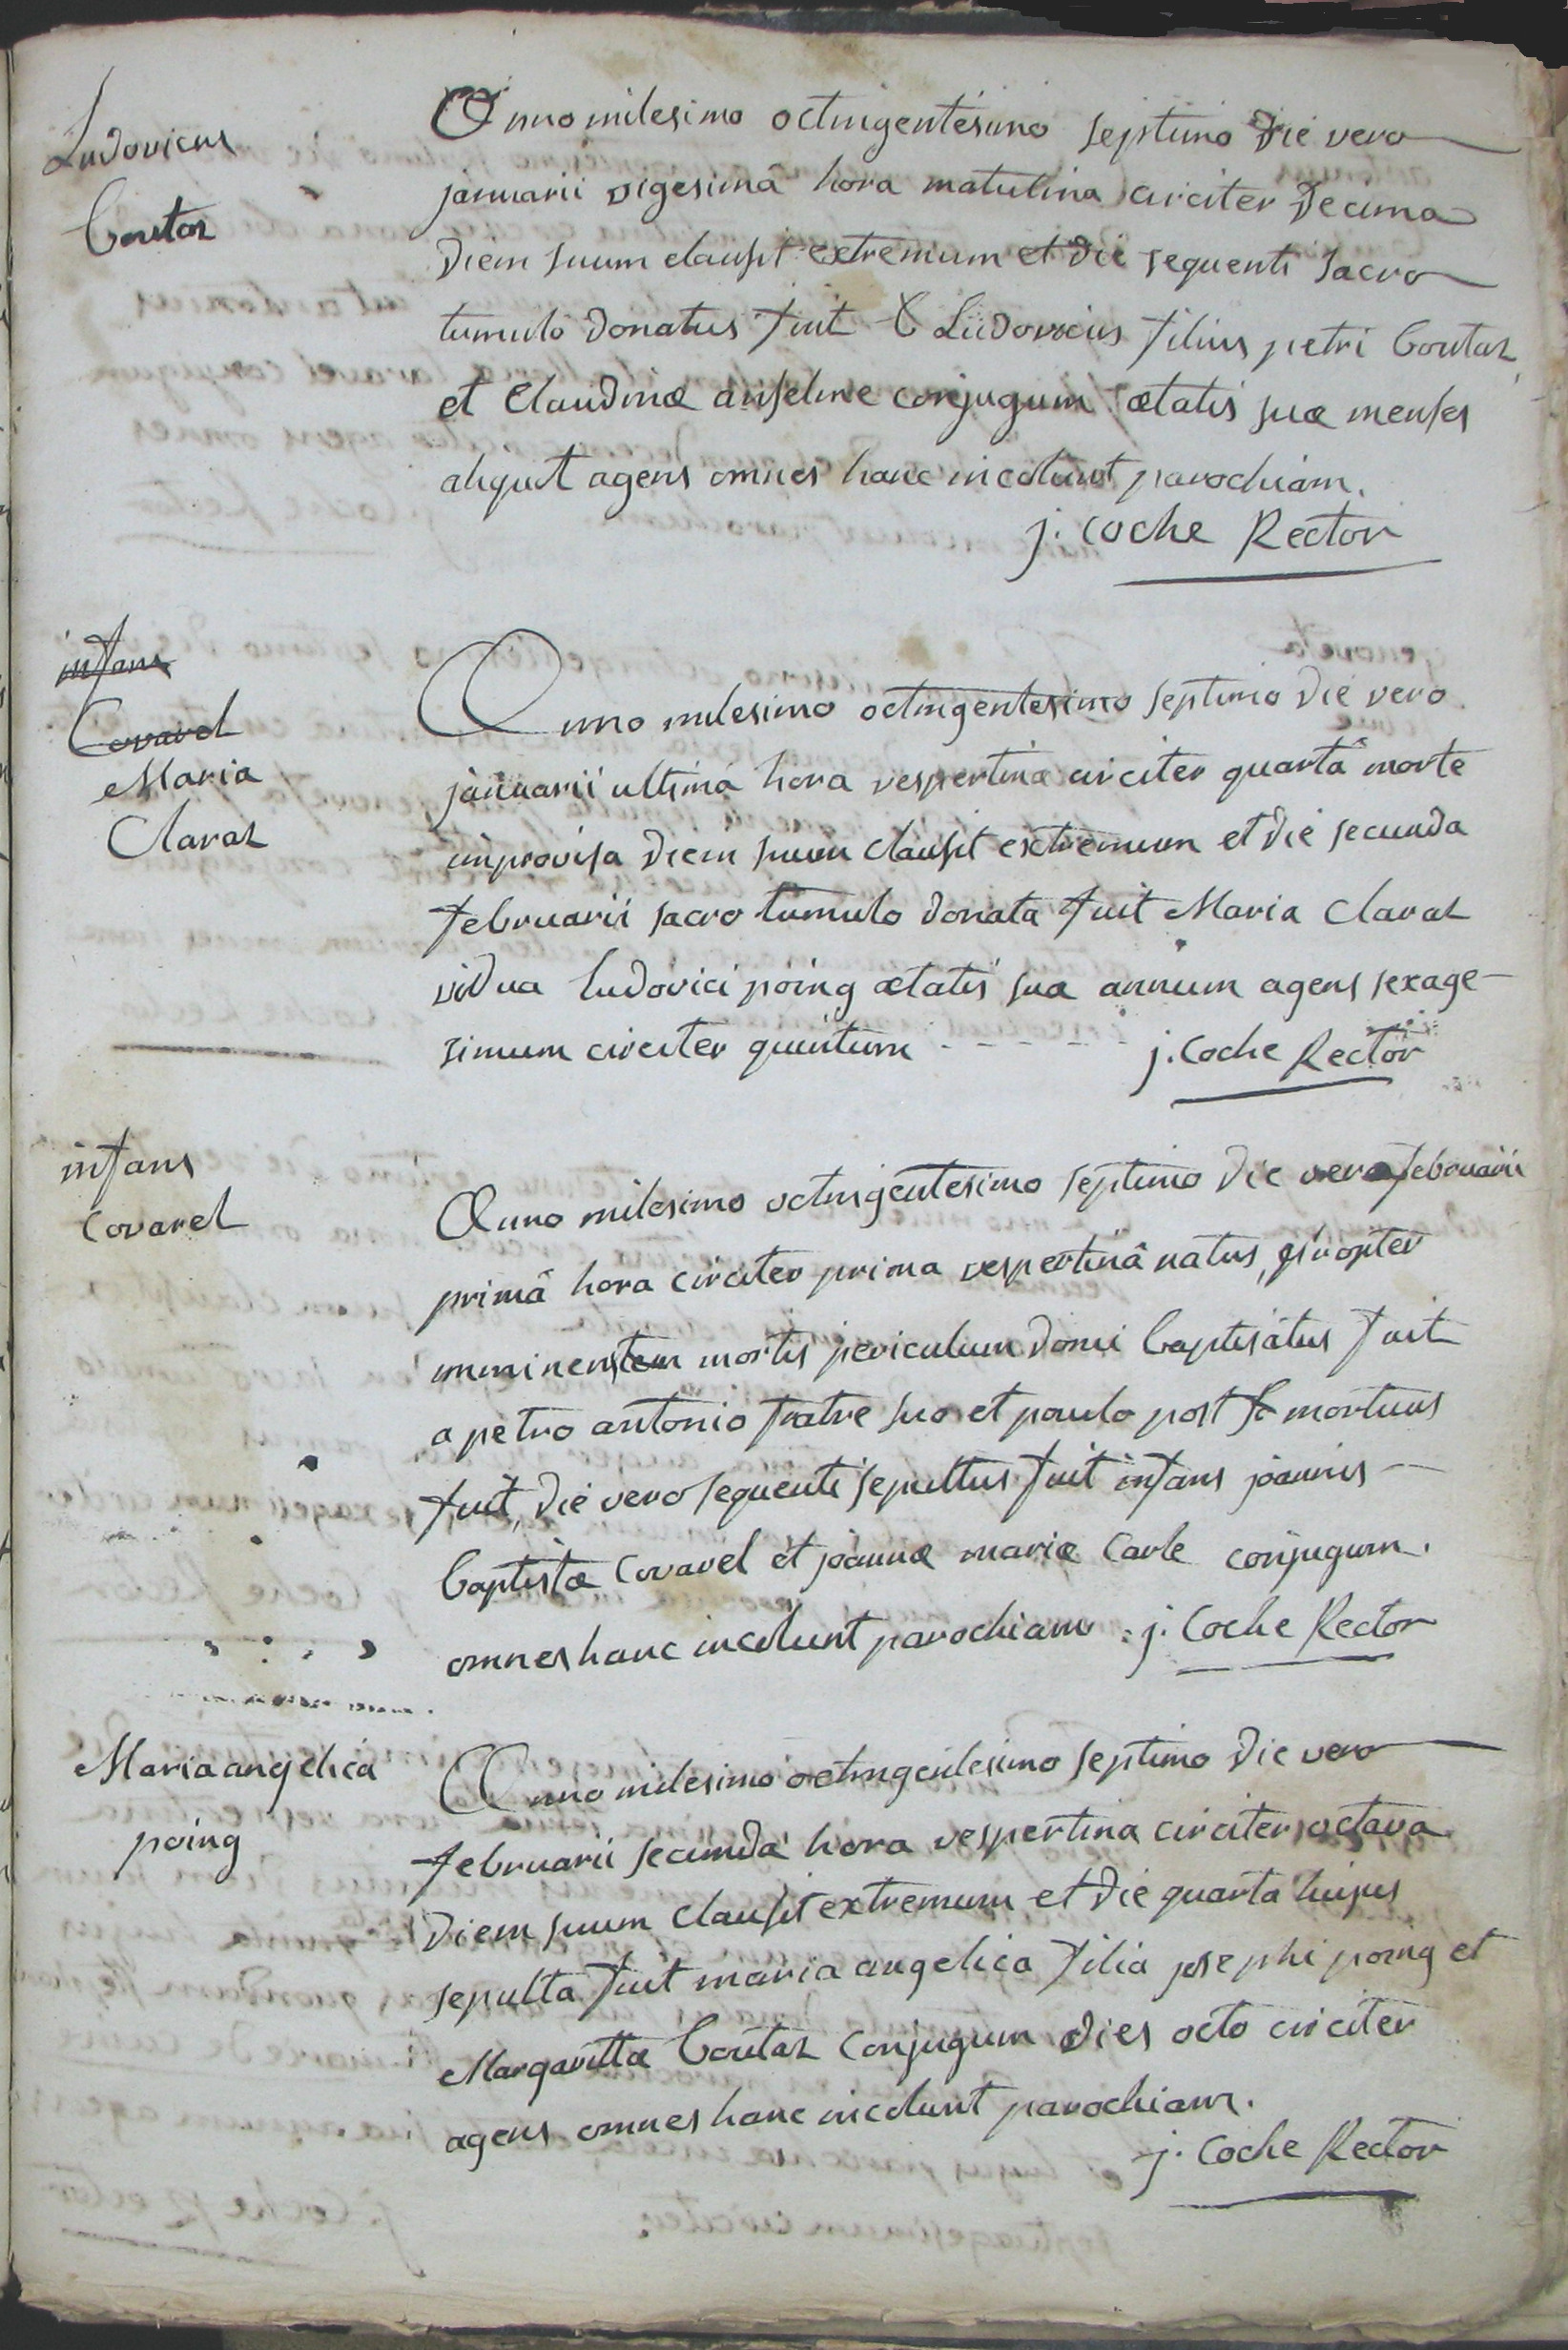 Ludovicus
Coutaz
Anno milesimo octingentésimo septimo die vero
januarii vigesimâ hora matutina circiter decima
diem suum clausit extremum et die sequenti sacro
tumulo donatus fuit Ludovicus filius petri Coutaz
et Claudinæ anselme conjugum ætatis suæ menses
aliquot agens omnes hanc incolunt parochiam.
j. Coche Rector
infans
Covarel
Maria
Claraz
Anno milesimo octingentesimo septimo die vero
januarii ultimâ hora vespertina circiter quartâ morte
improvisa diem suum clausit extremum et die secunda
februarii sacro tumulo donata fuit Maria Claraz
vidua ludovici poing ætatis suæ annum agens sexage-
simum circiter quintum - - - - - j. Coche Rector
infans
Covarel
Anno milesimo octingentesimo septimo die vero februarii
primâ hora circiter prima vespertinâ natus, propter
imminentem mortis periculum domi baptisatus fuit
a petro antonio fratre suo et paulo post mortuus
fuit, die vero sequenti sepultus fuit infans joannis
baptistæ Covarel et joannæ mariæ Carle conjugum.
omnes hanc incolunt parochiam . j. Coche Rector
Maria angelica
poing
Anno milesimo octingentesimo septimo die vero
februarii secunda hora vespertina circiter octava
diem suum clausit extremum et die quarta hujus
sepulta fuit maria angelica filia josephi poing et
Margarittæ Coutaz conjugum dies octo circiter
agens omnes hanc incolunt parochiam.
j. Coche Rector